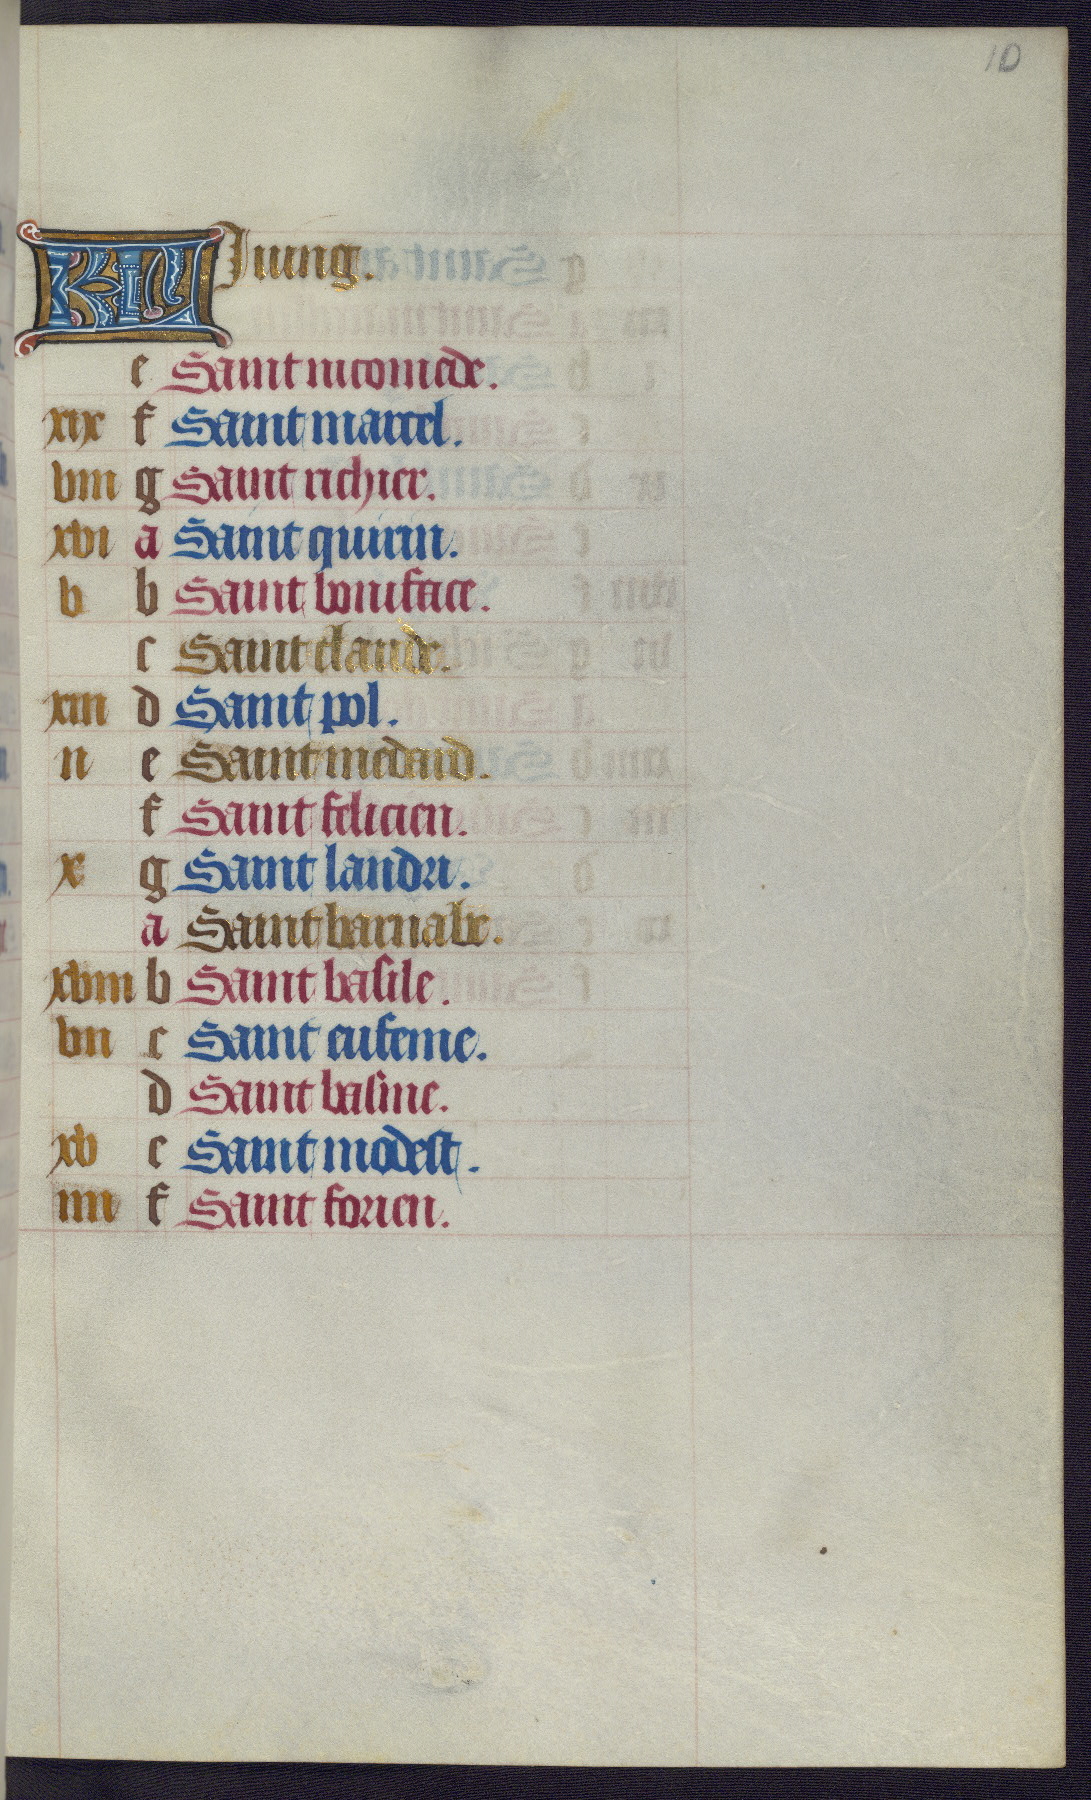 10
KL Juing.
e Saint nicomede.
xix f Saint marcel.
viii g Saint richier.
xvi a Saint quirin.
v b Saint boniface.
c Saint claude.
xiii d Saint pol.
ii e Saint medard.
f Saint felicien.
x g Saint landri.
a Saint barnabe.
xviii b Saint basile.
vii c Saint eufeme.
d Saint basine.
xv e Saint modest.
iiii f Saint forien.